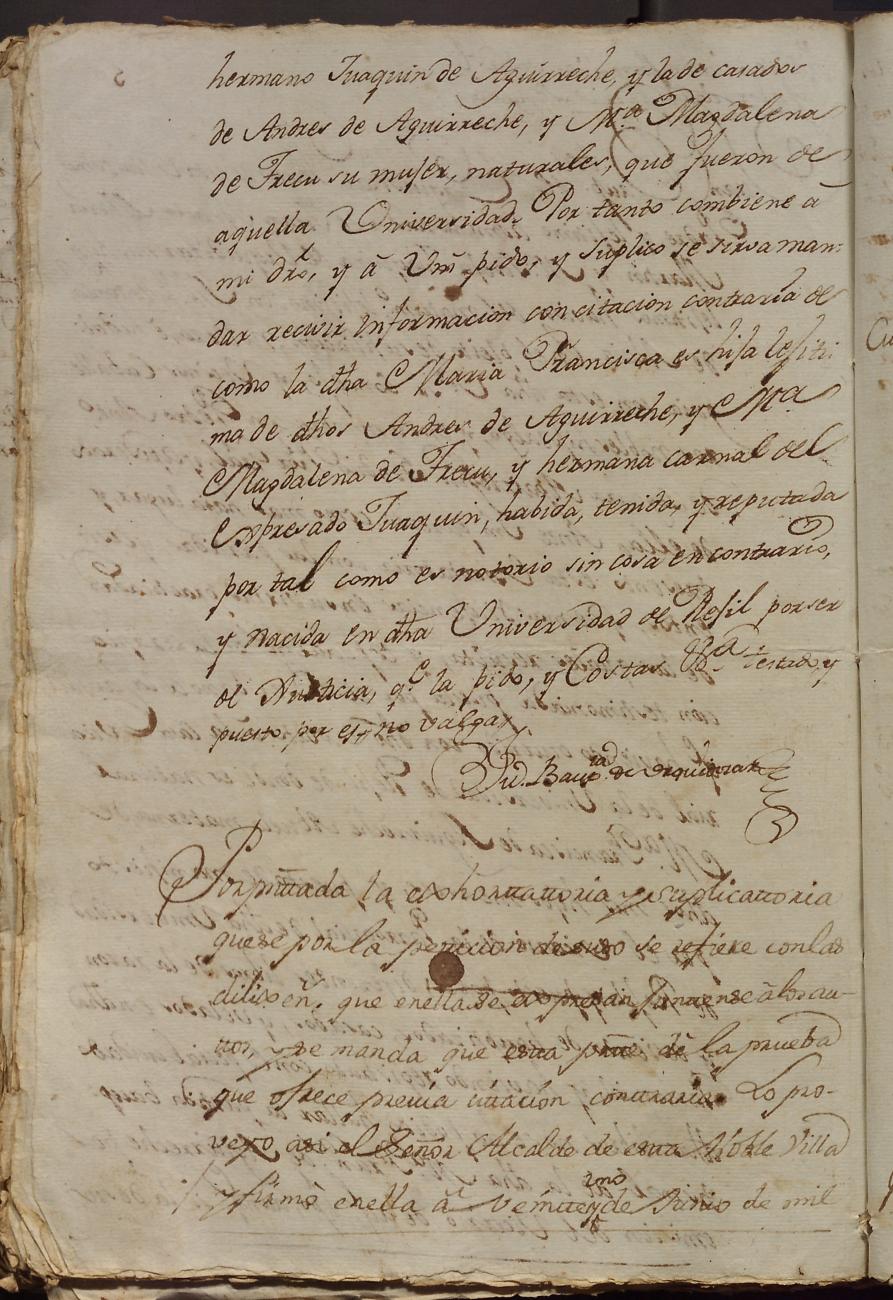 hermano Juaquin de Aguirreche, y la de casados
de Andres de Aguirreche, y Mª Magdalena
de Frecu su mujer, naturales, que fueron de
aquella Universidad. Por tanto combiene â
mi dro, y â Vm pido, y suplico se sirva man=
dar recivir informacion con citacion contraria de
como la dha Maria Francisca es hija lejiti
ma de dhos Andres de Aguirreche, y Mª
Magdalena de Frecu, y hermana carnal del
Expresado Juaquin, habida, tenida, y reputada
por tal como es notorio sin cosa en contrario,
y nacida en dha Universidad de Rejil por ser
de Justicia, q.e la pido, y Costas testado, y
puesto por no valga
Por pnttada la exhorttattoria y suplicattoria
que se por la peticion de suso se refiere con las
dilixen.s que en ella se expresan junttense â los au-
ttos, y se manda que estta partte dê la prueba
que ofrece previa cittacion conttraria Lo pro-
veyo asi el Señor Alcalde de estta Noble Villa
y firmò en ella â veintte y de Junio de mil